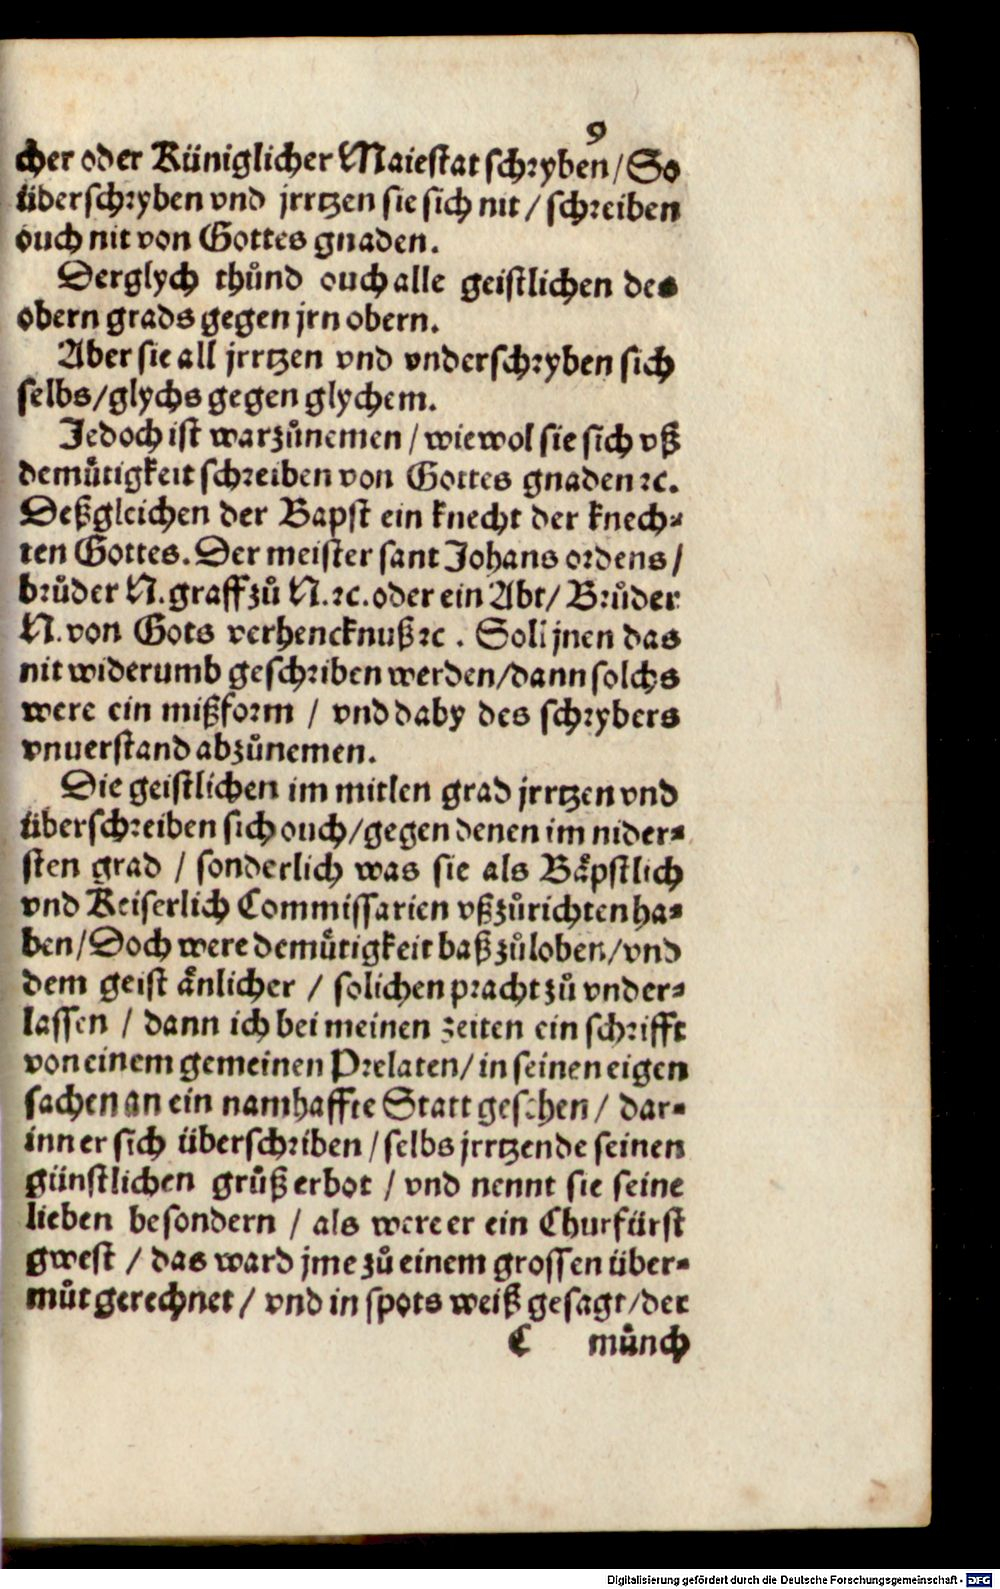 9
cher oder Küniglicher Maiestat schryben / So
überschryben vnd jrrtzen sie sich nit / schreiben
ouch nit von Gottes gnaden.
Derglych thůnd ouch alle geistlichen des
obern grads gegen jrn obern.
Aber sie all jrrtzen vnd vnderschryben sich
selbs / glychs gegen glychem.
Jedoch ist warzůnemen / wiewol sie sich vß
demůtigkeit schreiben von Gottes gnaden ꝛc.
Deßgleichen der Bapst ein knecht der knech⸗
ten Gottes. Der meister sant Johans ordens /
brůder N. graff zů N. ꝛc. oder ein Abt / Brůder
N. von Gots verhencknuß ꝛc. Soll jnen das
nit widerumb geschriben werden / dann solchs
were ein mißform / vnd daby des schrybers
vnuerstand abzůnemen.
Die geistlichen im mitlen grad jrrtzen vnd
überschreiben sich ouch / gegen denen im nider⸗
sten grad / sonderlich was sie als Båpstlich
vnd Keiserlich Commissarien vßzůrichten ha⸗
ben / Doch were demůtigkeit baß zůloben / vnd
dem geist ånlicher / solichen pracht zů vnder⸗
lassen / dann ich bei meinen zeiten ein schrifft
von einem gemeinen Prelaten / in seinen eigen
sachen an ein namhaffte Statt gesehen / dar⸗
inn er sich überschriben / selbs jrrtzende seinen
günstlichen grůß erbot / vnd nennt sie seine
lieben besondern / als were er ein Churfürst
gwest / das ward jme zů einem grossen über⸗
můt gerechnet / vnd in spots weiß gesagt / der
C münch
Digitalisierung gefördert durch die Deutsche Forschungsgemeinschaft - DFG